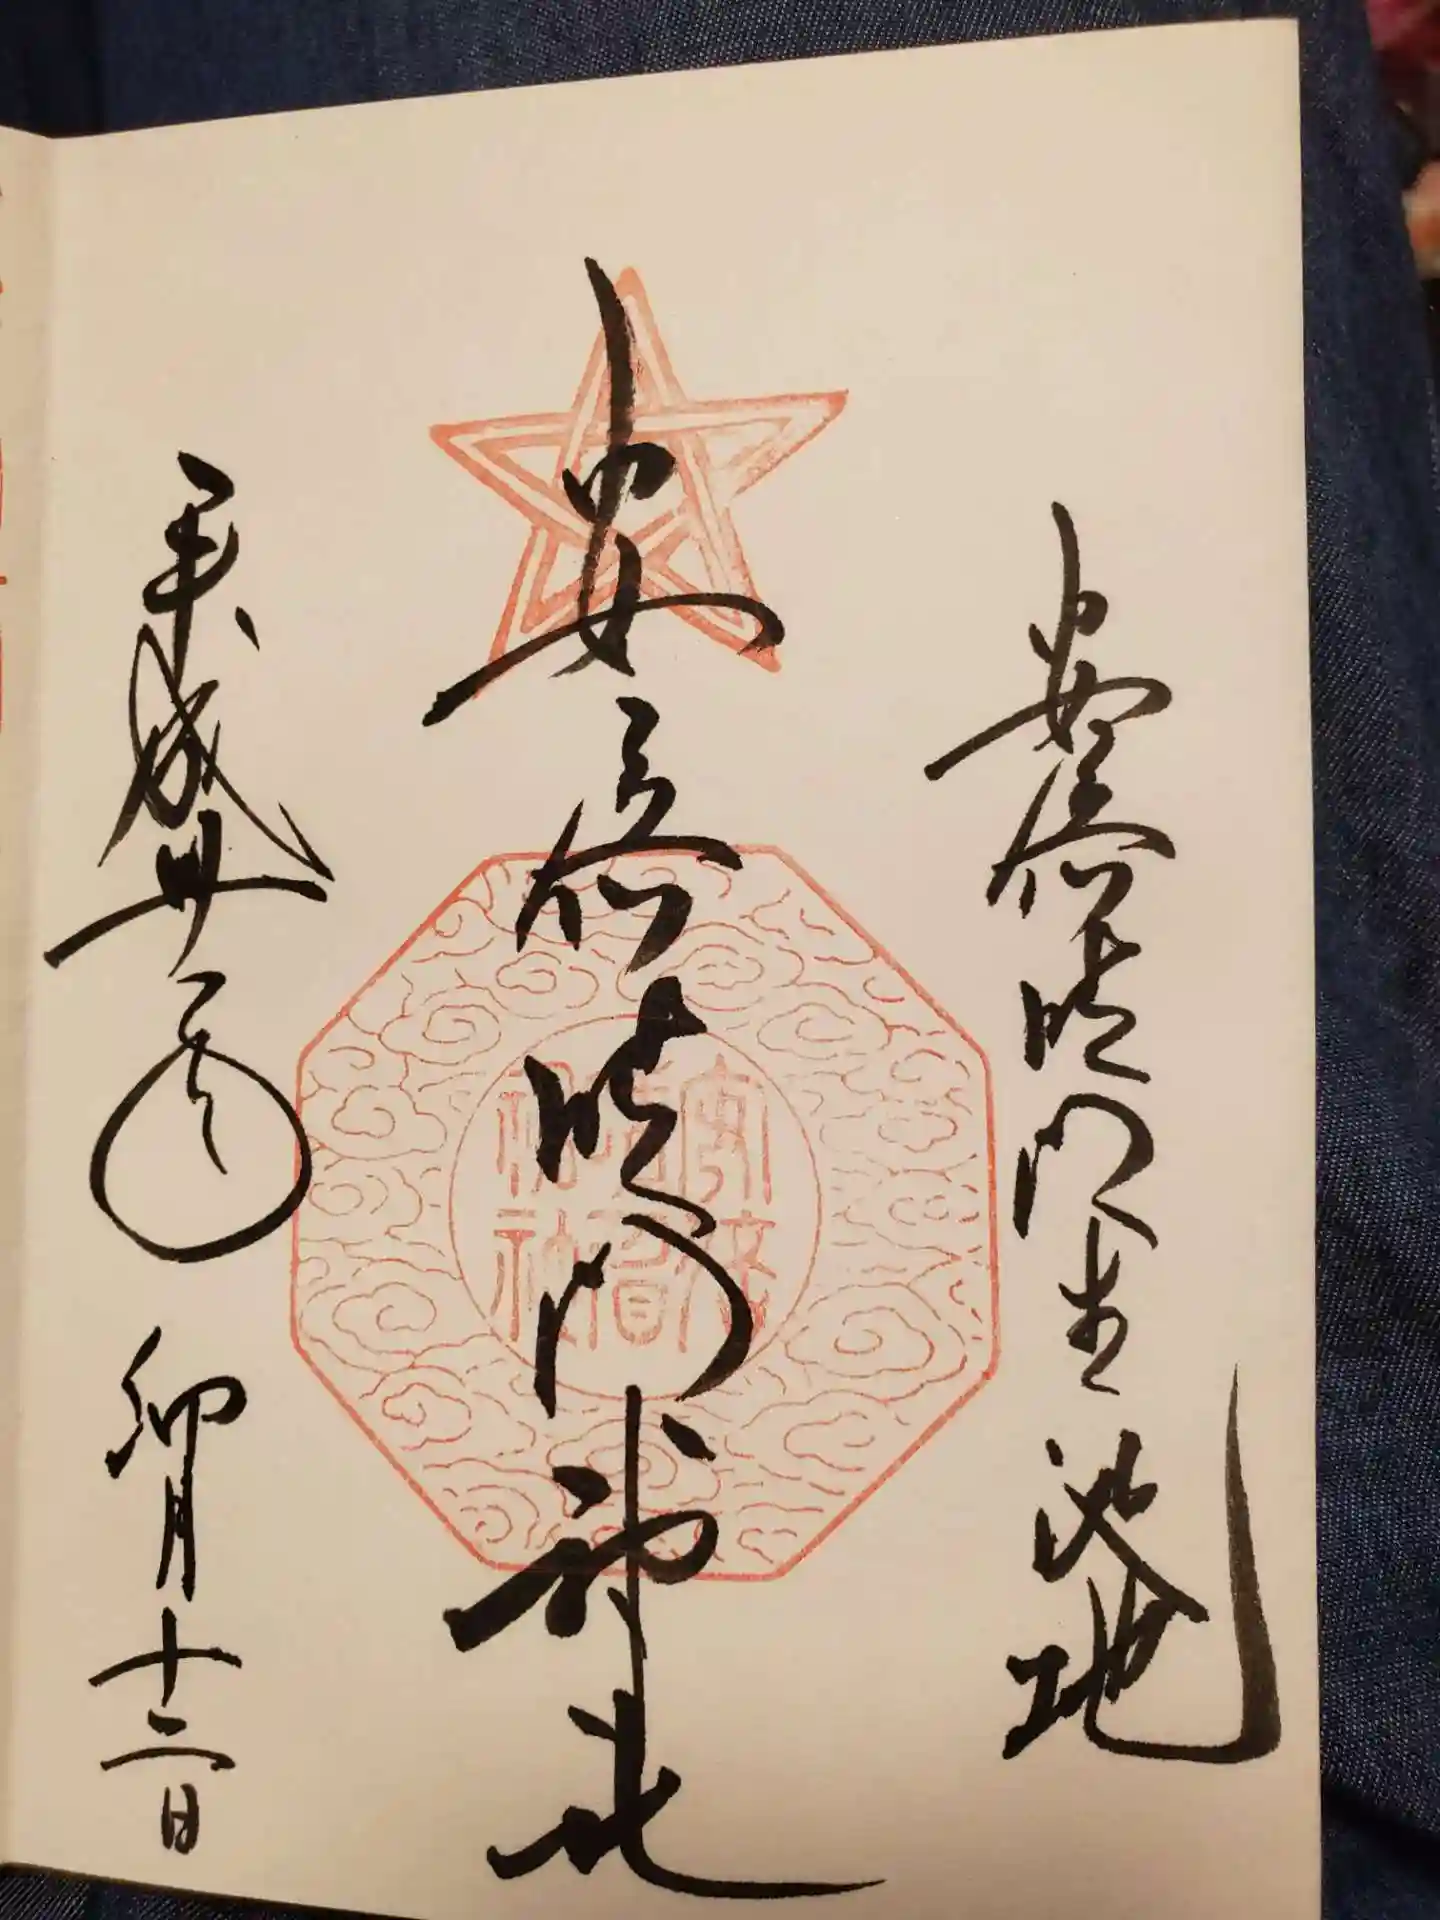 安倍晴明生誕地
安倍晴明神社
平成丗一年 卯月十二日
安倍
晴明
神社